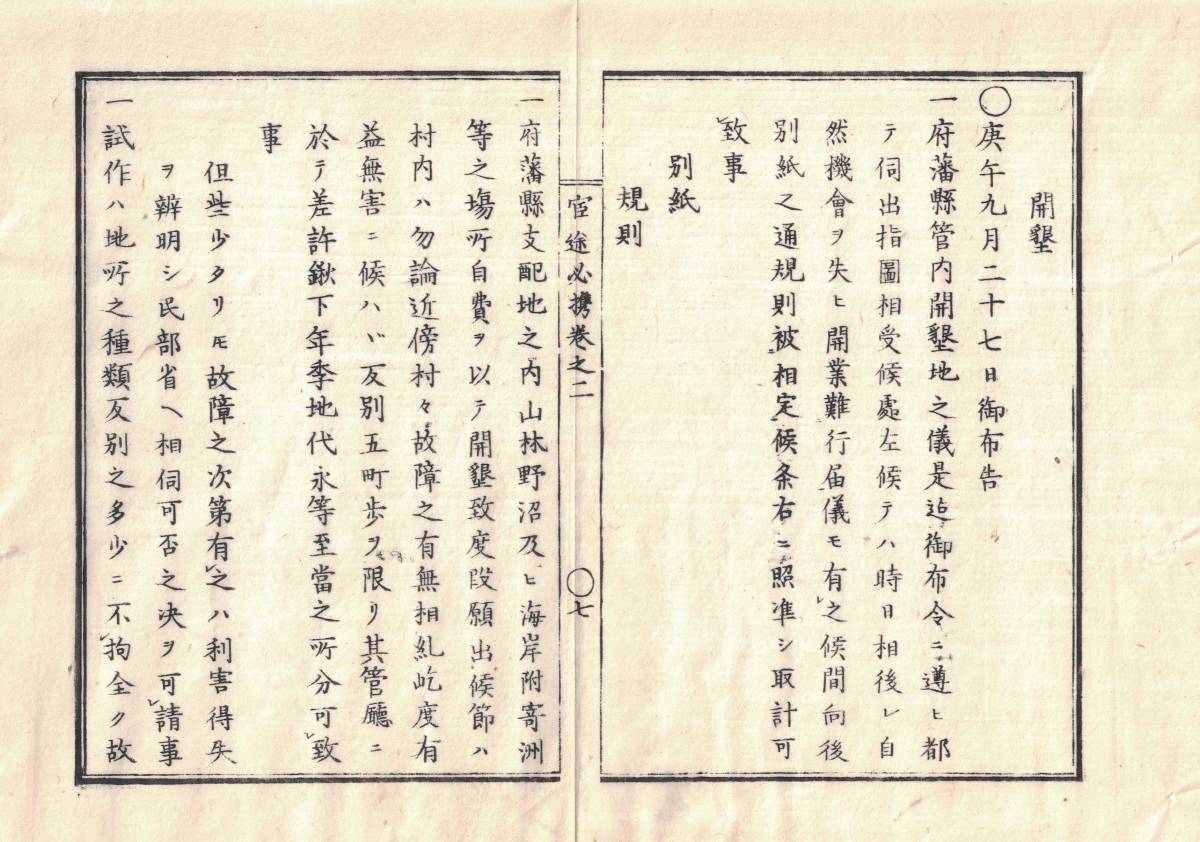 開墾
〇庚午九月二十七日御布告
一府藩縣管内開墾地之儀是迄御布令ニ遵ヒ都
テ伺出指圖相受候處左候テハ時日相後レ自
然機會ヲ失ヒ開業難行届儀モ有レ之候間向後
別紙之通規則被相定候条右ニ照準シ取計可
レ致事
別紙
規則
官途必携巻之二
〇七
一府藩縣支配地之内山林野沼及ヒ海岸附寄洲
等之塲所自費ヲ以テ開墾致度段願出候節ハ
村内ハ勿論近傍村々故障之有無相糺屹度有
益無害ニ候ハヾ反別五町歩ヲ限リ其管廳ニ
於テ差許鍬下年季地代永等至當之所分可レ致
事
但些少タリ𪜈故障之次第有レ之ハ利害得失
ヲ辨明シ民部省ヘ相伺可否之决ヲ可レ請事
一試作ハ地所之種類反別之多少ニ不レ拘全ク故